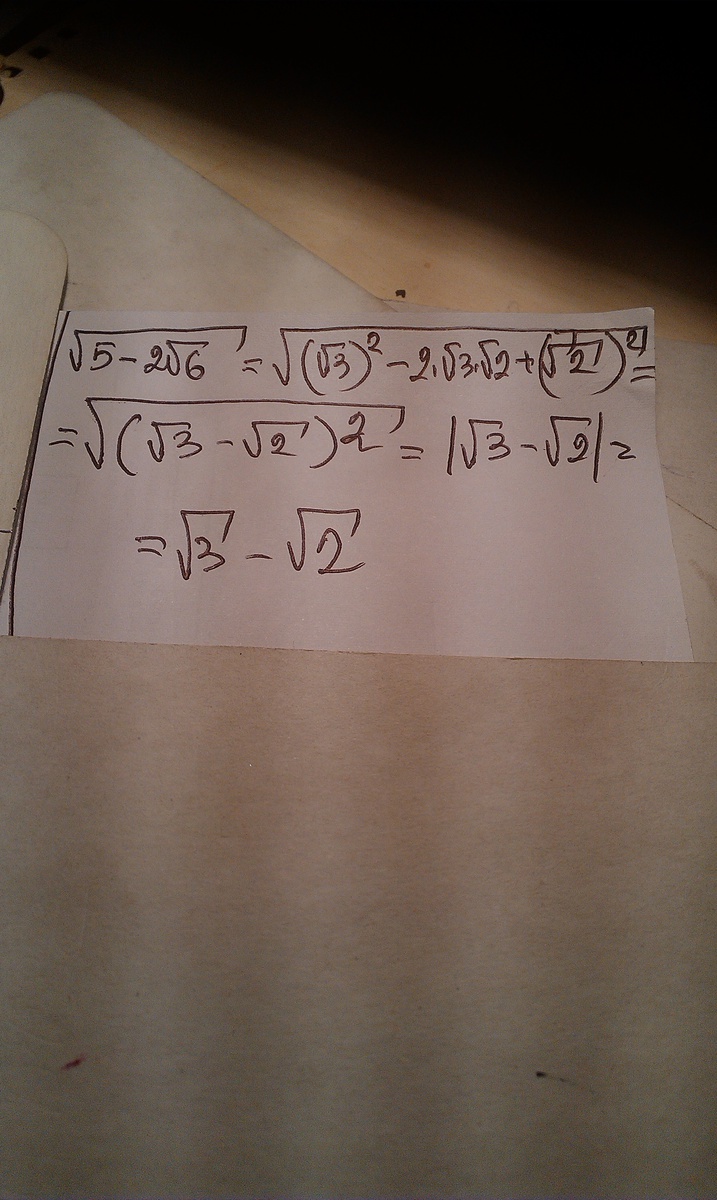 √(5 − 2√6) = √((√3)² − 2·√3·√2 + (√2)²) =
= √((√3 − √2)²) = |√3 − √2| =
= √3 − √2